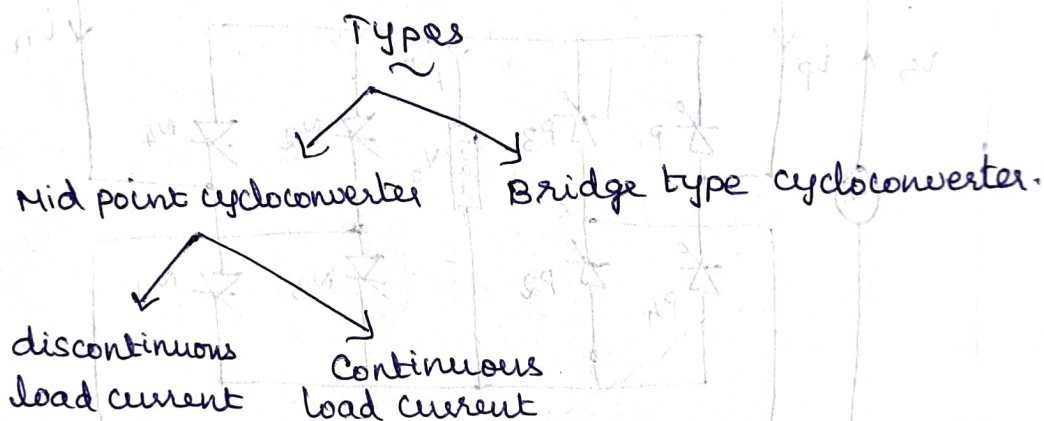 Types
Mid point cycloconverter Bridge type cycloconverter.
discontinuous
load current
Continuous
load current